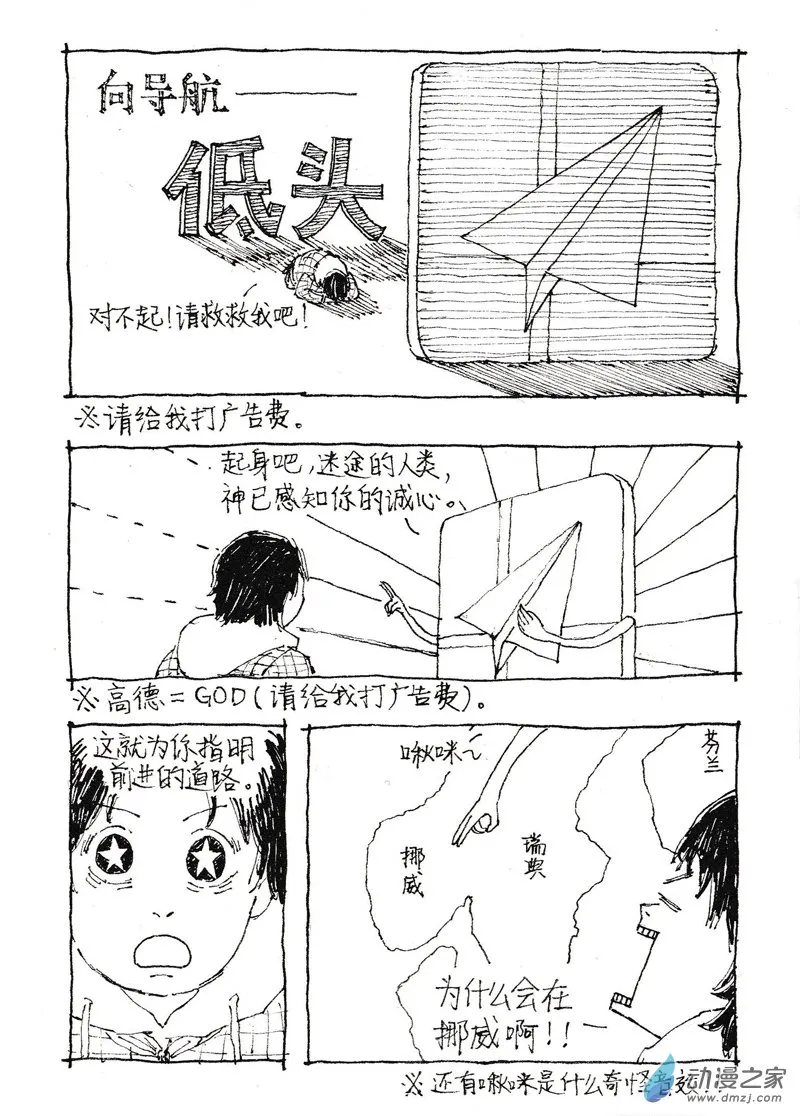 向导航——
低头
对不起!请救救我吧!
※请给我打广告费。
起身吧,迷途的人类,
神已感知你的诚心。
※高德=GOD(请给我打广告费)。
这就为你指明
前进的道路。
啾咪~
芬兰
挪威
瑞典
为什么会在
挪威啊!!
※还有啾咪是什么奇怪音效!!
动漫之家
www.dmzj.com